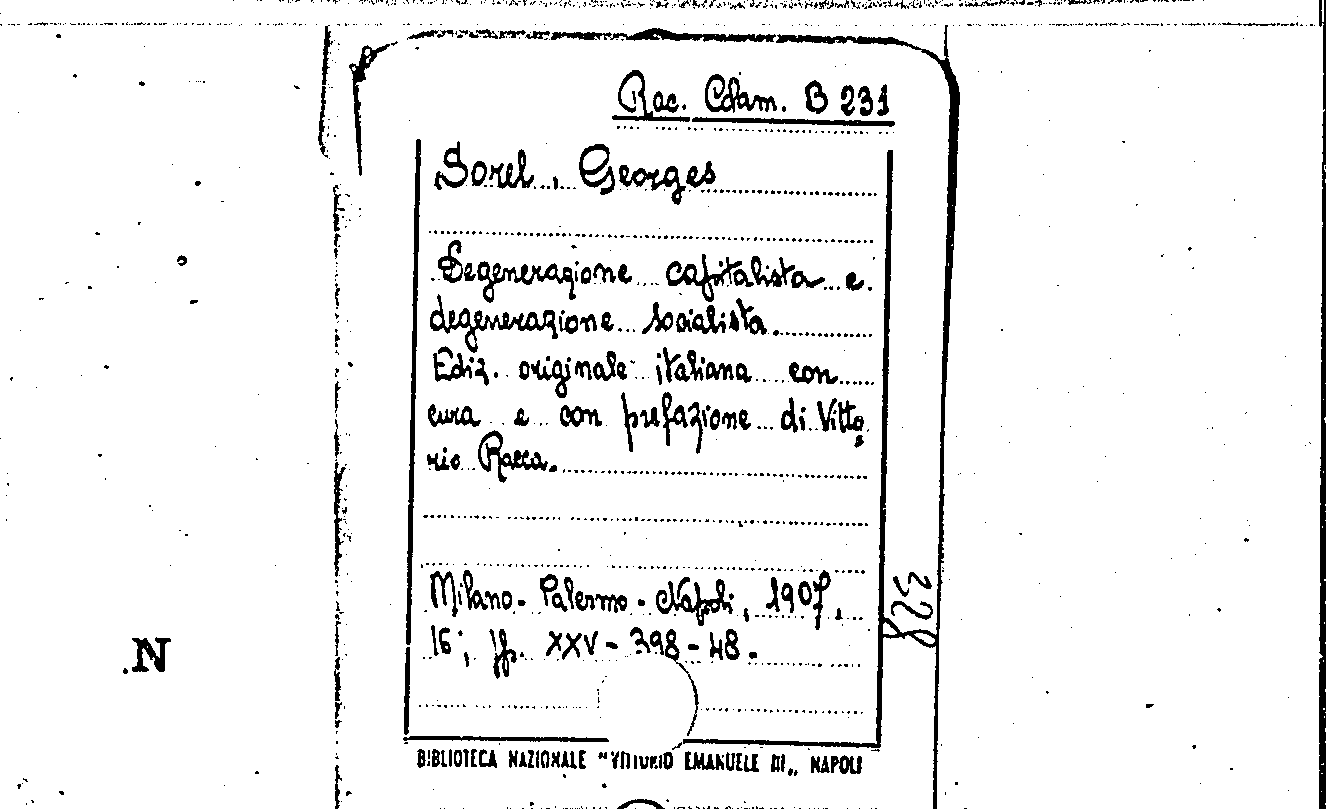 Rac. Colam. B 231
Sorel, Georges
Degenerazione capitalista e
degenerazione socialista.
Ediz. originale italiana con
cura e con prefazione di Vitto
rio Racca.
Milano - Palermo - Napoli, 1907.
16°; pp. XXV - 398 - 48.
328
N
BIBLIOTECA NAZIONALE "VITTORIO EMANUELE III„ NAPOLI